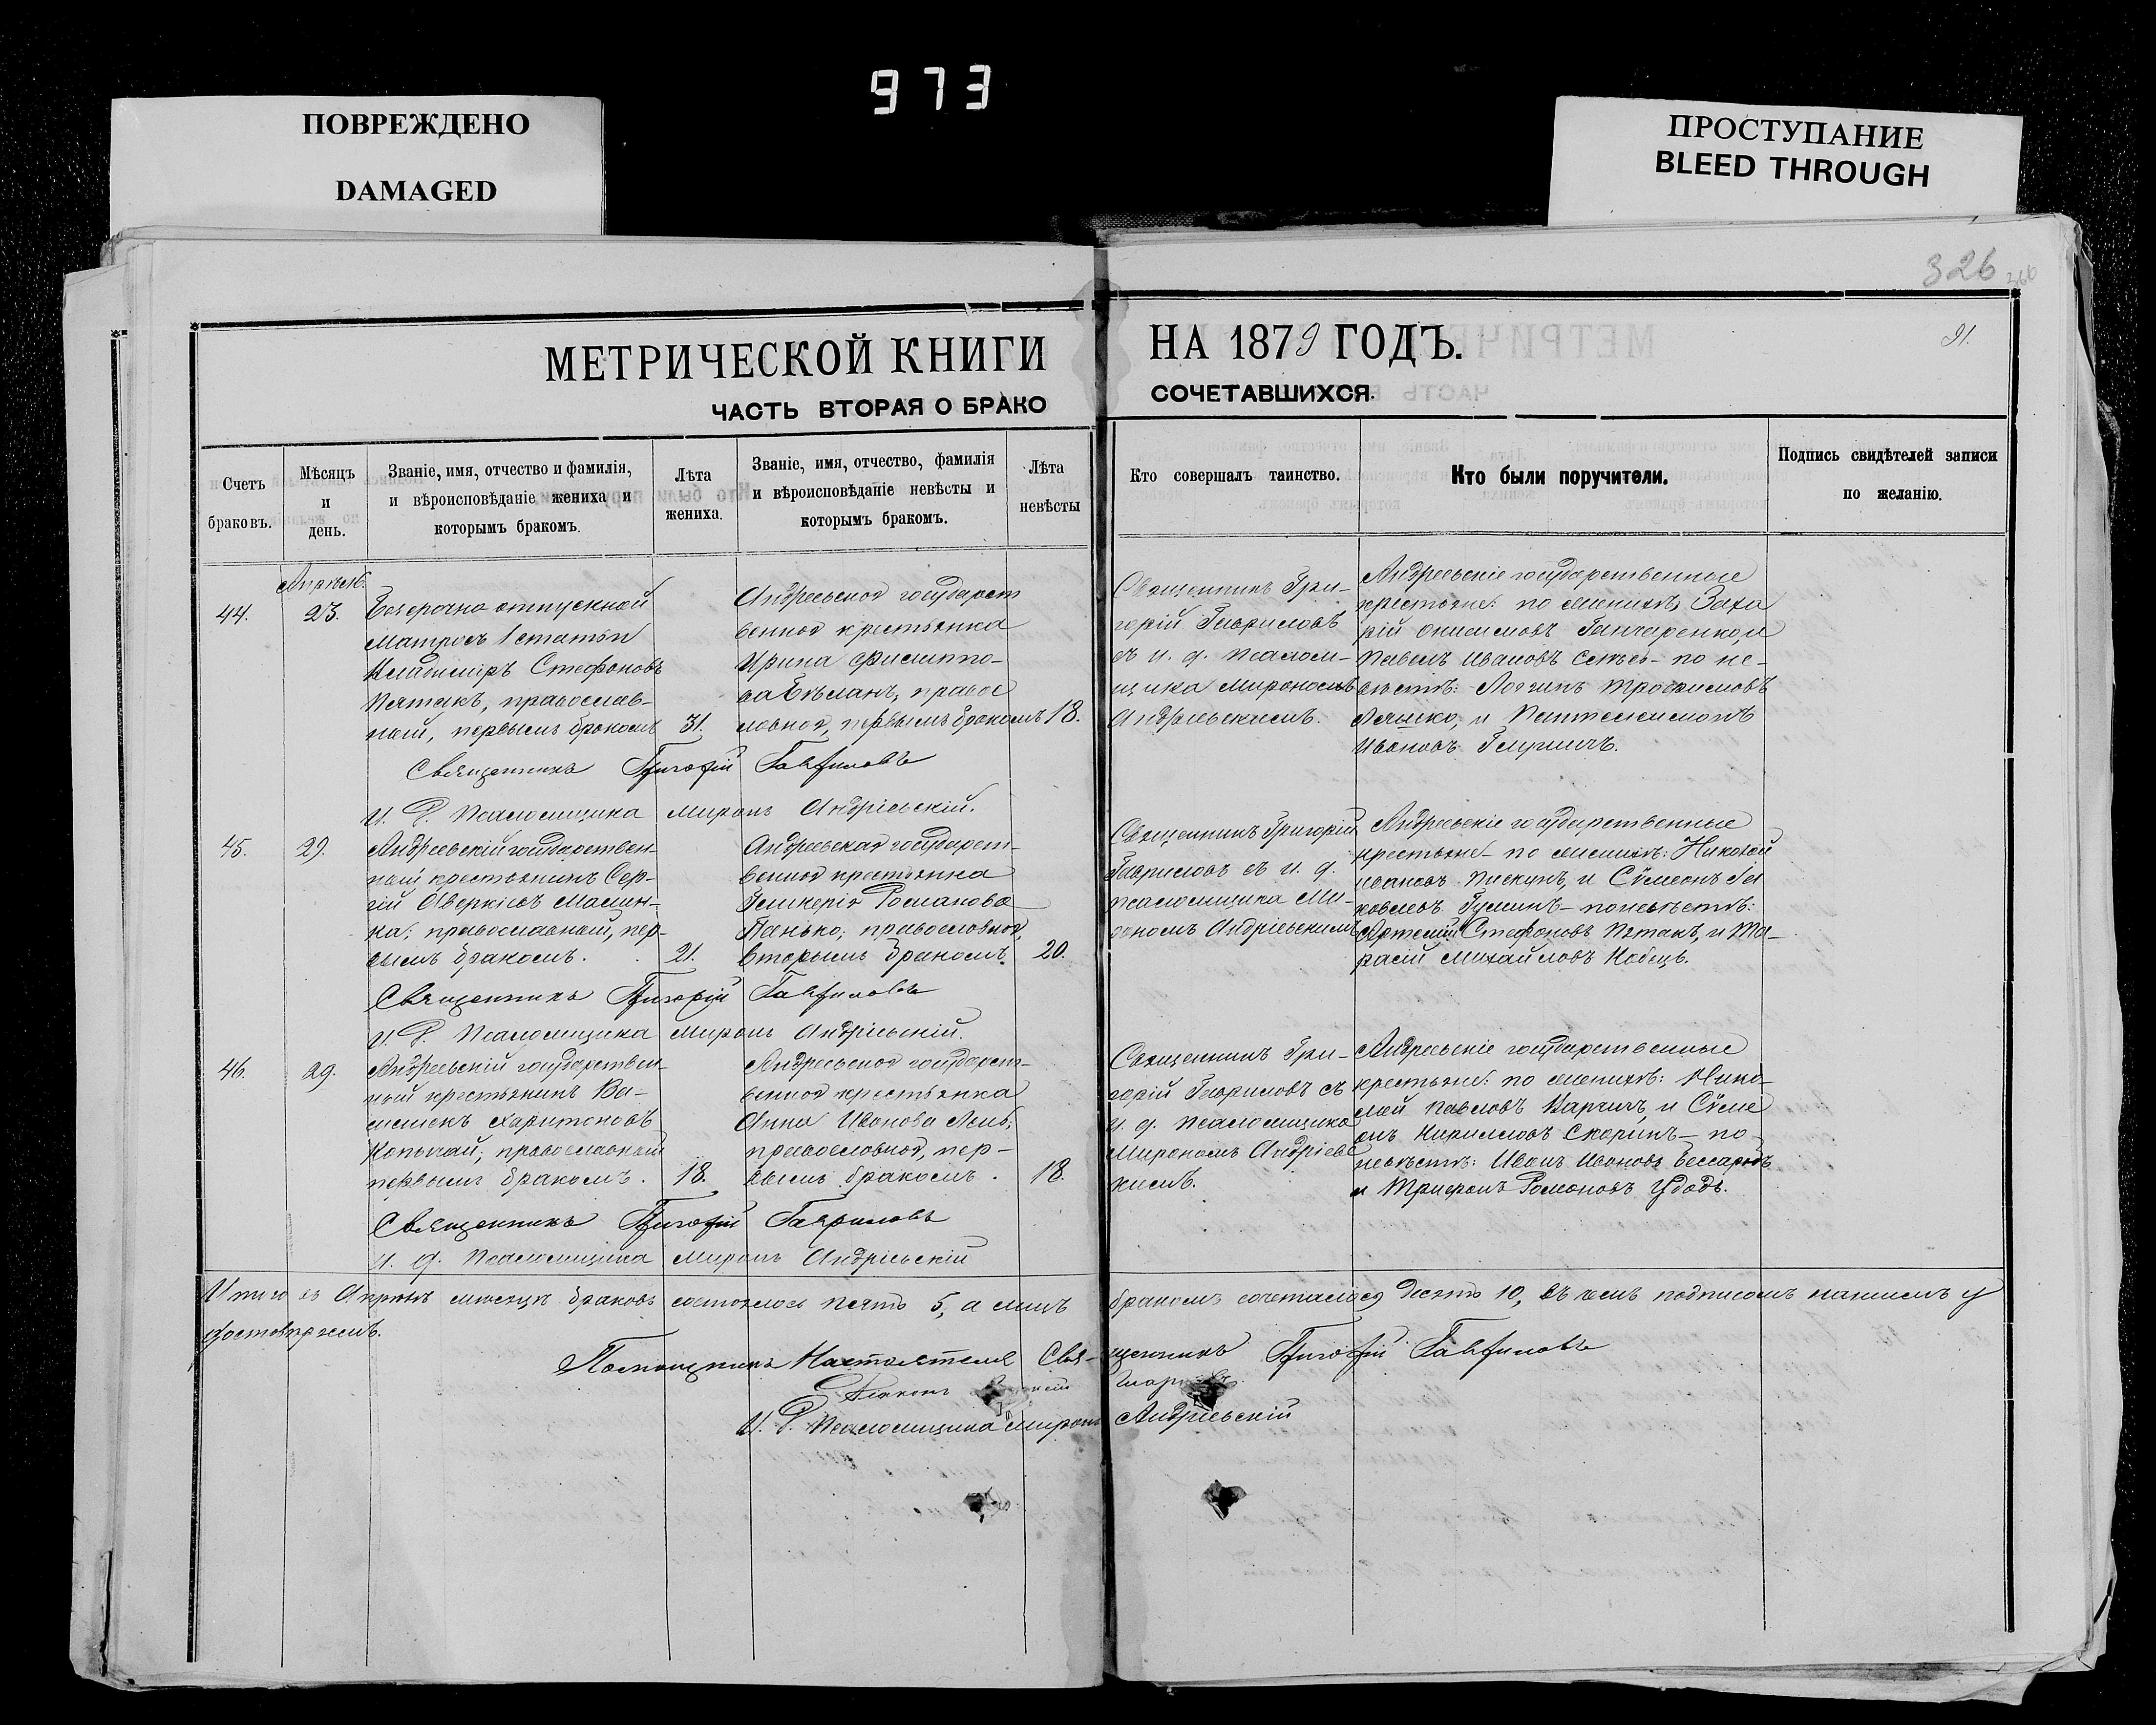 973
ПОВРЕЖДЕНО
DAMAGED
ПРОСТУПАНИЕ
BLEED THROUGH
326
91.
МЕТРИЧЕСКОЙ КНИГИ
НА 1879 ГОДЪ.
ЧАСТЬ ВТОРАЯ О БРАКО
СОЧЕТАВШИХСЯ.
Счетъ браковъ.
Мѣсяцъ и день.
Званіе, имя, отчество и фамилія, и вѣроисповѣданіе жениха и которымъ бракомъ.
Лѣта жениха.
Званіе, имя, отчество, фамилія и вѣроисповѣданіе невѣсты и которымъ бракомъ.
Лѣта невѣсты
Кто совершалъ таинство.
Кто были поручители.
Подпись свидѣтелей записи по желанію.
44.
Апрѣль.
23.
Безсрочно отпускной
матросъ 1 статьи
Владиміръ Стефановъ
Пятакъ, православ-
ный, первымъ бракомъ
31.
Андреевская государст
венная крестьянка
Ирина Филиппо-
ва, правос
лавная, первымъ бракомъ
18.
Священникъ Гри-
горій Гавриловъ
съ и. д. псалом-
щика Мирономъ
Андріевскимъ.
Андреевскіе государственные
крестьяне: по женихѣ Заха
рій Гончаренко и
Павелъ Ивановъ по не-
вѣстѣ: Логгинъ Трофимовъ
Ляшко, и Пантелеимонъ
Ивановъ
Священникъ Григорій Гавриловъ
И. Д. Псаломщика Миронъ Андріевскій.
45.
29.
Андреевскій государствен-
ный крестьянинъ Сер-
гій Аверкіевъ Малин-
ка; православный, пер-
вымъ бракомъ.
21.
Андреевская государст-
венная крестьянка
Гликерія Романова
Панько; православная,
вторымъ бракомъ.
20.
Священникъ Григорій
Гавриловъ съ и. д.
псаломщика Ми-
рономъ Андріевскимъ
Андреевскіе государственные
крестьяне по женихѣ: Николай
Ивановъ Пискунъ, и Сѵмеонъ Іа
ковлевъ по невѣстѣ:
Артемій Стефановъ Пятакъ, и Та-
расій Михайловъ Кобецъ.
Священникъ Григорій Гавриловъ
И. Д. Псаломщика Миронъ Андріевскій.
46.
29.
Андреевскій государствен-
ный крестьянинъ Ва-
силій Харитоновъ
православный
первымъ бракомъ.
18.
Андреевская государст-
венная крестьянка
Анна Иванова
православная, пер-
вымъ бракомъ.
18.
Священникъ Гри-
горій Гавриловъ съ
и. д. псаломщика
Мирономъ Андріевс
кимъ.
Андреевскіе государственные
крестьяне: по женихѣ: Нико-
лай Павловъ и Сѵме
онъ Кирилловъ Скоринъ по
невѣстѣ: Иванъ Ивановъ
и Трифонъ Романовъ Удодъ.
Священникъ Григорій Гавриловъ
И. д. Псаломщика Миронъ Андріевскій
Итого въ Апрѣлѣ мѣсяцѣ браковъ состоялось пять 5, а лицъ бракомъ сочеталось десять 10, въ чемъ подписомъ нашимъ у
достовѣряемъ.
Помощникъ Настоятеля Священникъ Григорій Гавриловъ
И. Д. Псаломщика Миронъ Андріевскій